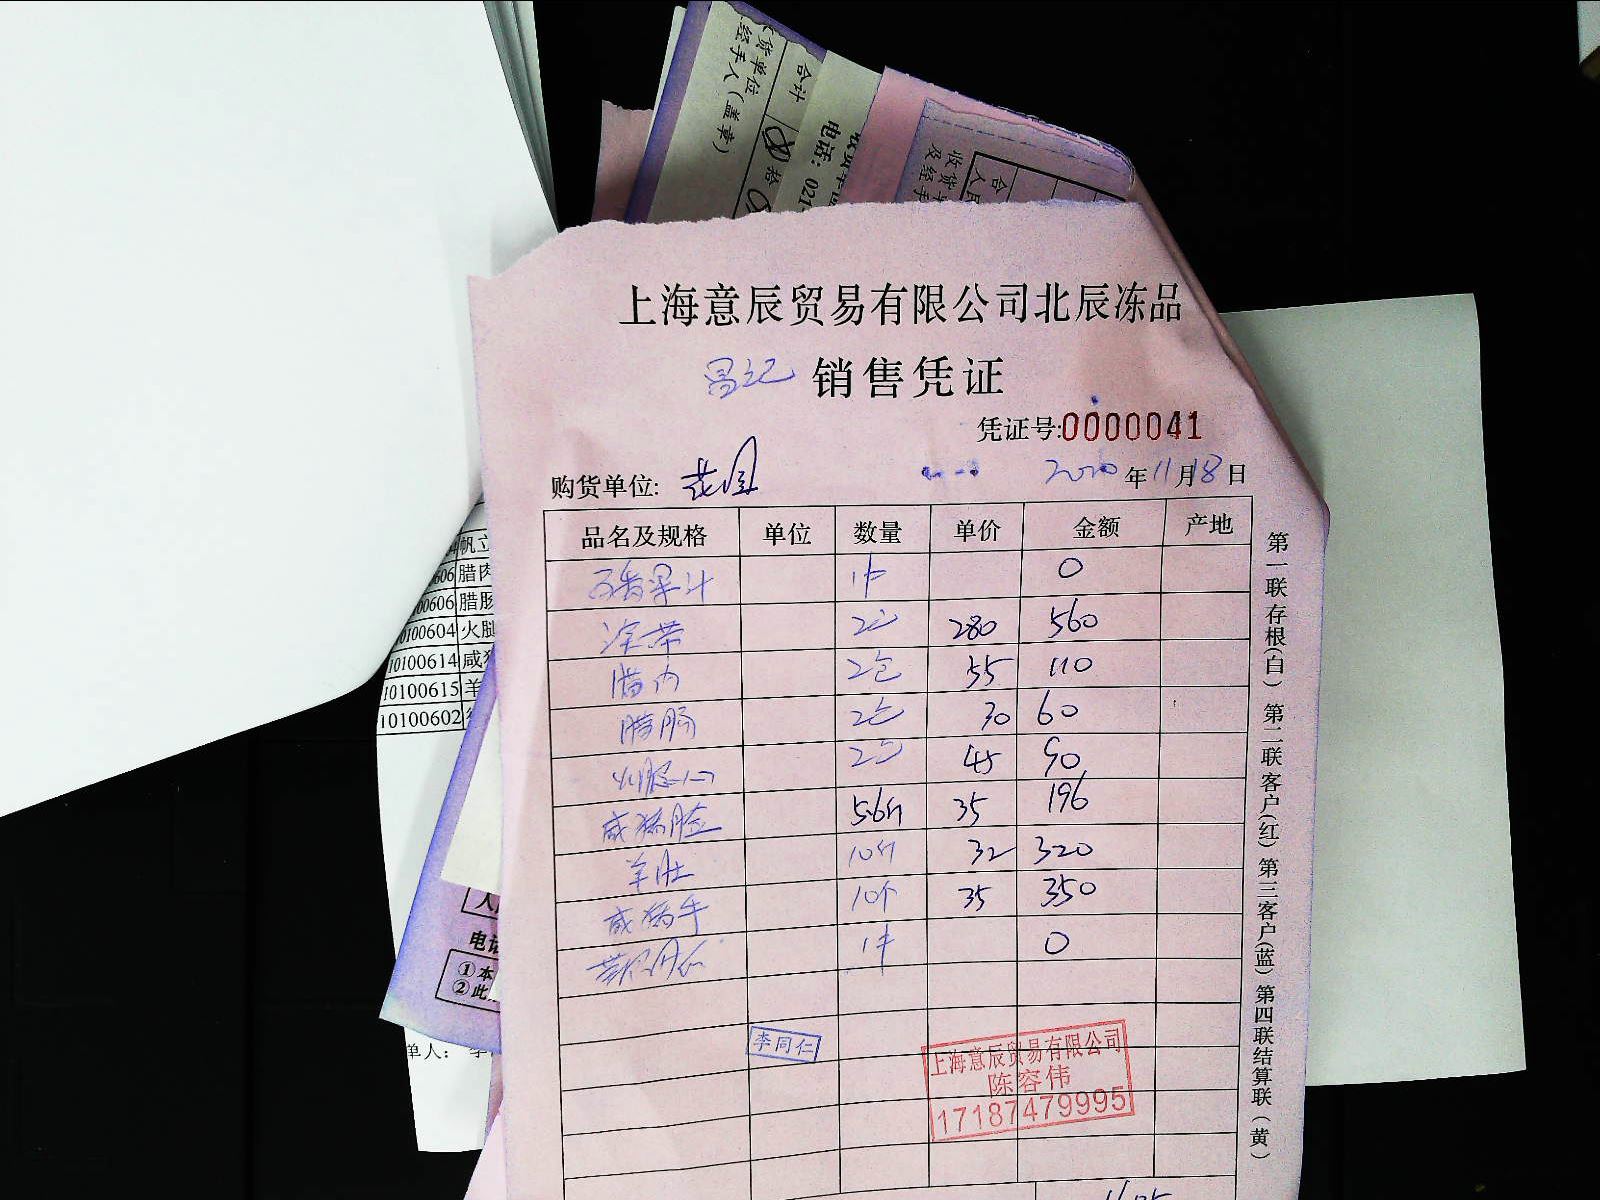 货单位
经手人（盖章）
合计
拾
电话：021-
收货单
及经手
合
人民
上海意辰贸易有限公司北辰冻品
昌记 销售凭证
凭证号:0000041
购货单位: 花园 2020年11月18日
品名及规格 单位 数量 单价 金额 产地
百香果汁 1件 0
2包 280 560
腊肉 2包 55 110
腊肠 2包 30 60
火腿心 2包 45 90
咸猪脸 5.6斤 35 196
羊肚 10斤 32 320
咸猪手 10个 35 350
1件 0
李同仁
上海意辰贸易有限公司
陈容伟
17187479995
第一联存根(白) 第二联客户(红) 第三客户(蓝) 第四联结算联(黄)
帆立
0606 腊肉
00606 腊肠
0100604 火腿
10100614 咸猪
10100615 羊
10100602
人
电话
①本
②此
单人：李